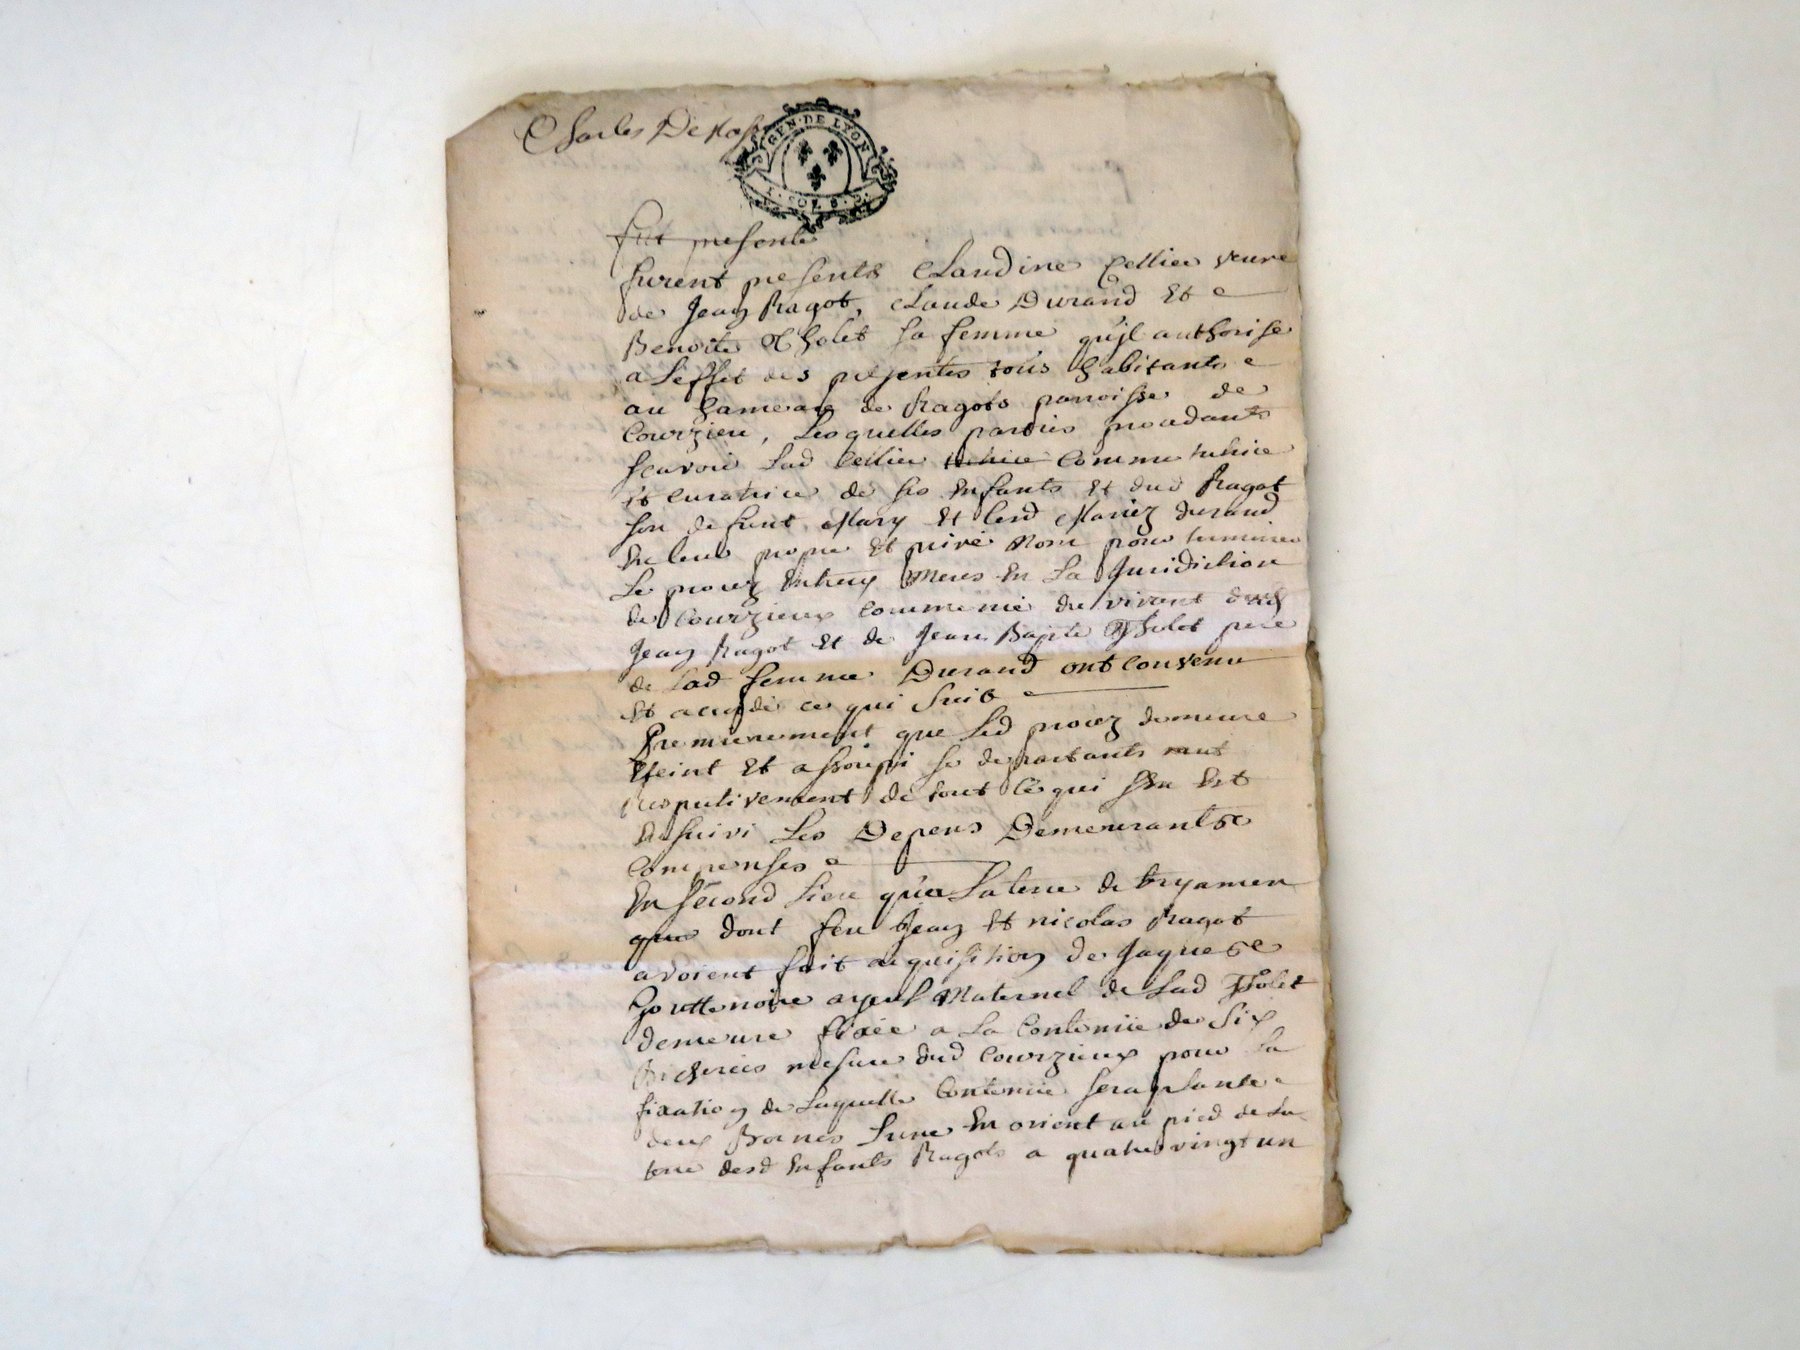 Charles
GEN · DE LYON
SOLS
fut presente
furent presents Claudine Cellier veuve
de Jean Ragot, Claude Durand Et
Benoite Tholet sa femme qu'jl authorise
a Leffet des presentes tous habitants
au hameau de Ragots parroisse de
Courzieu, Lesquelles parties procedants
scavoir Lad Cellier tutrice comme tutrice
Et curatrice de ses Enfants Et dud Ragot
son defunt Mary Et lesd Mariez durand
En leur propre Et privé Nom pour terminer
Le procez Entreux Meus En La Juridiction
de Courzieux commencé du vivant dud
Jean Ragot Et de Jean Bapte Tholet pere
de Lad femme Durand ont convenu
Et accordé ce qui suit
Premierement que Led procez demeure
Eteint Et assoupi se departants mut
respectivement de tout ce qui sen Est
Ensuivi Les Depens Demeurants
compensés
En second Lieu que La terre de
que dont feu Jean Et nicolas Ragot
avoient fait acquisition de Jaque
Gouttenoire ayeul Maternel de Lad Tholet
demeure fixée a La Contenüe de Six
Bicherées mesure dud Courzieux pour La
fixation de Laquelle Contenüe sera planté
deux Bornes Lune En orient au pied de La
terre desd Enfants Ragots a quatre vingt un